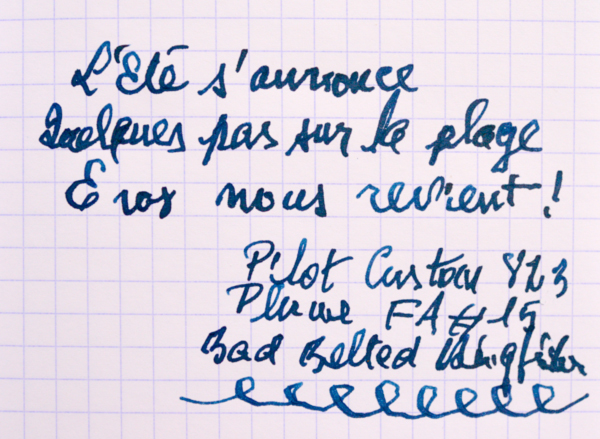 L'Eté s'annonce
Quelques pas sur la plage
Eros nous revient !
Pilot Custom 823
Plume FA #15
Bad Belted Kingfisher